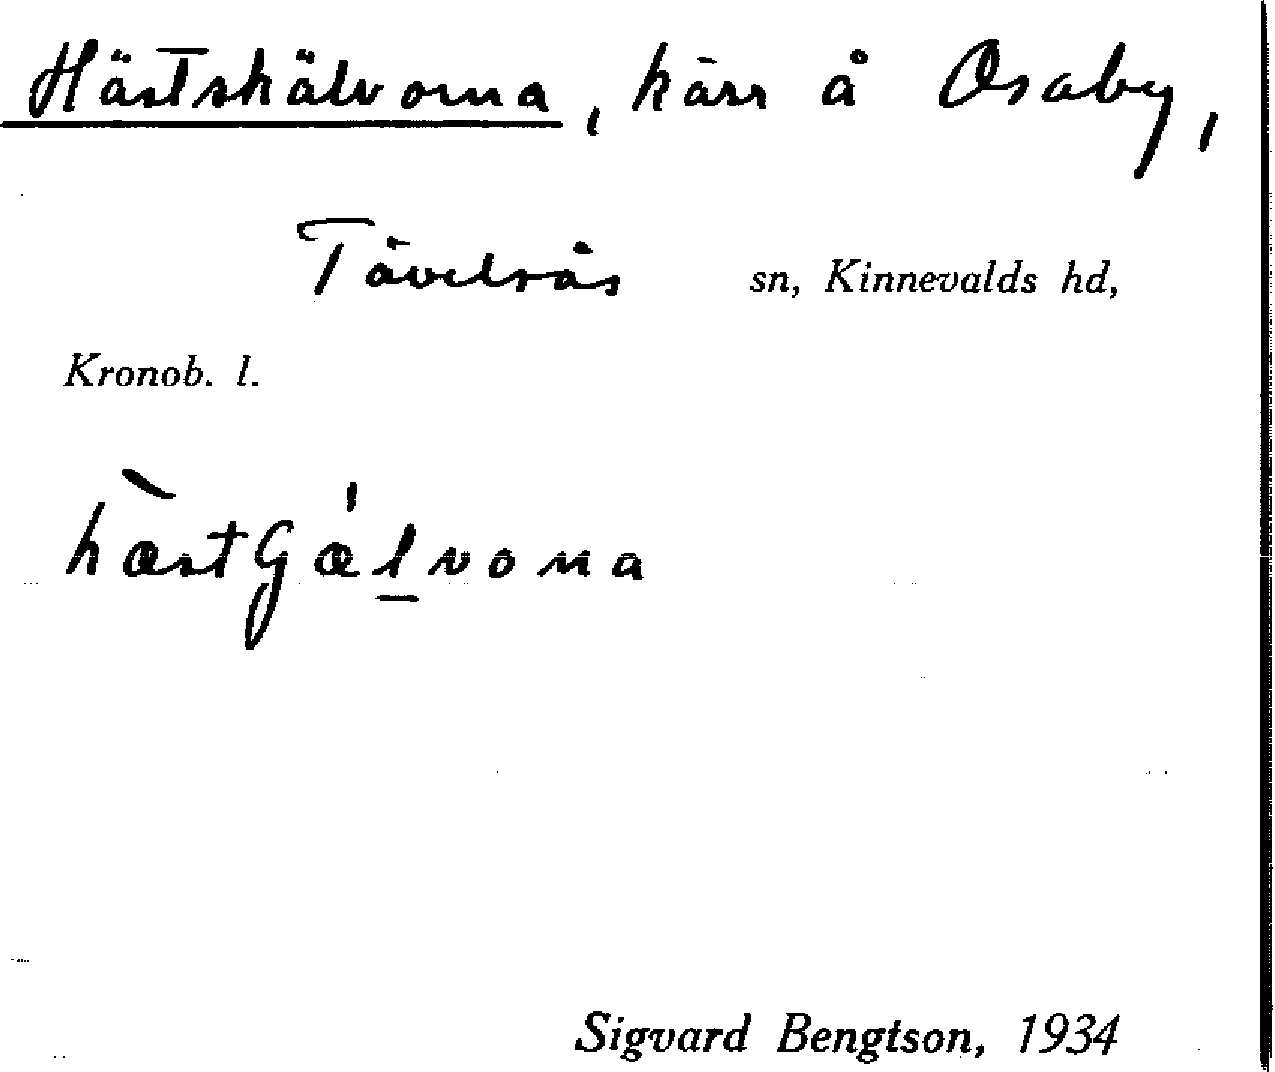 Hästskälvorna, kärr å Osaby,
Tävelsås sn, Kinnevalds hd,
Kronob. l.
Sigvard Bengtson, 1934